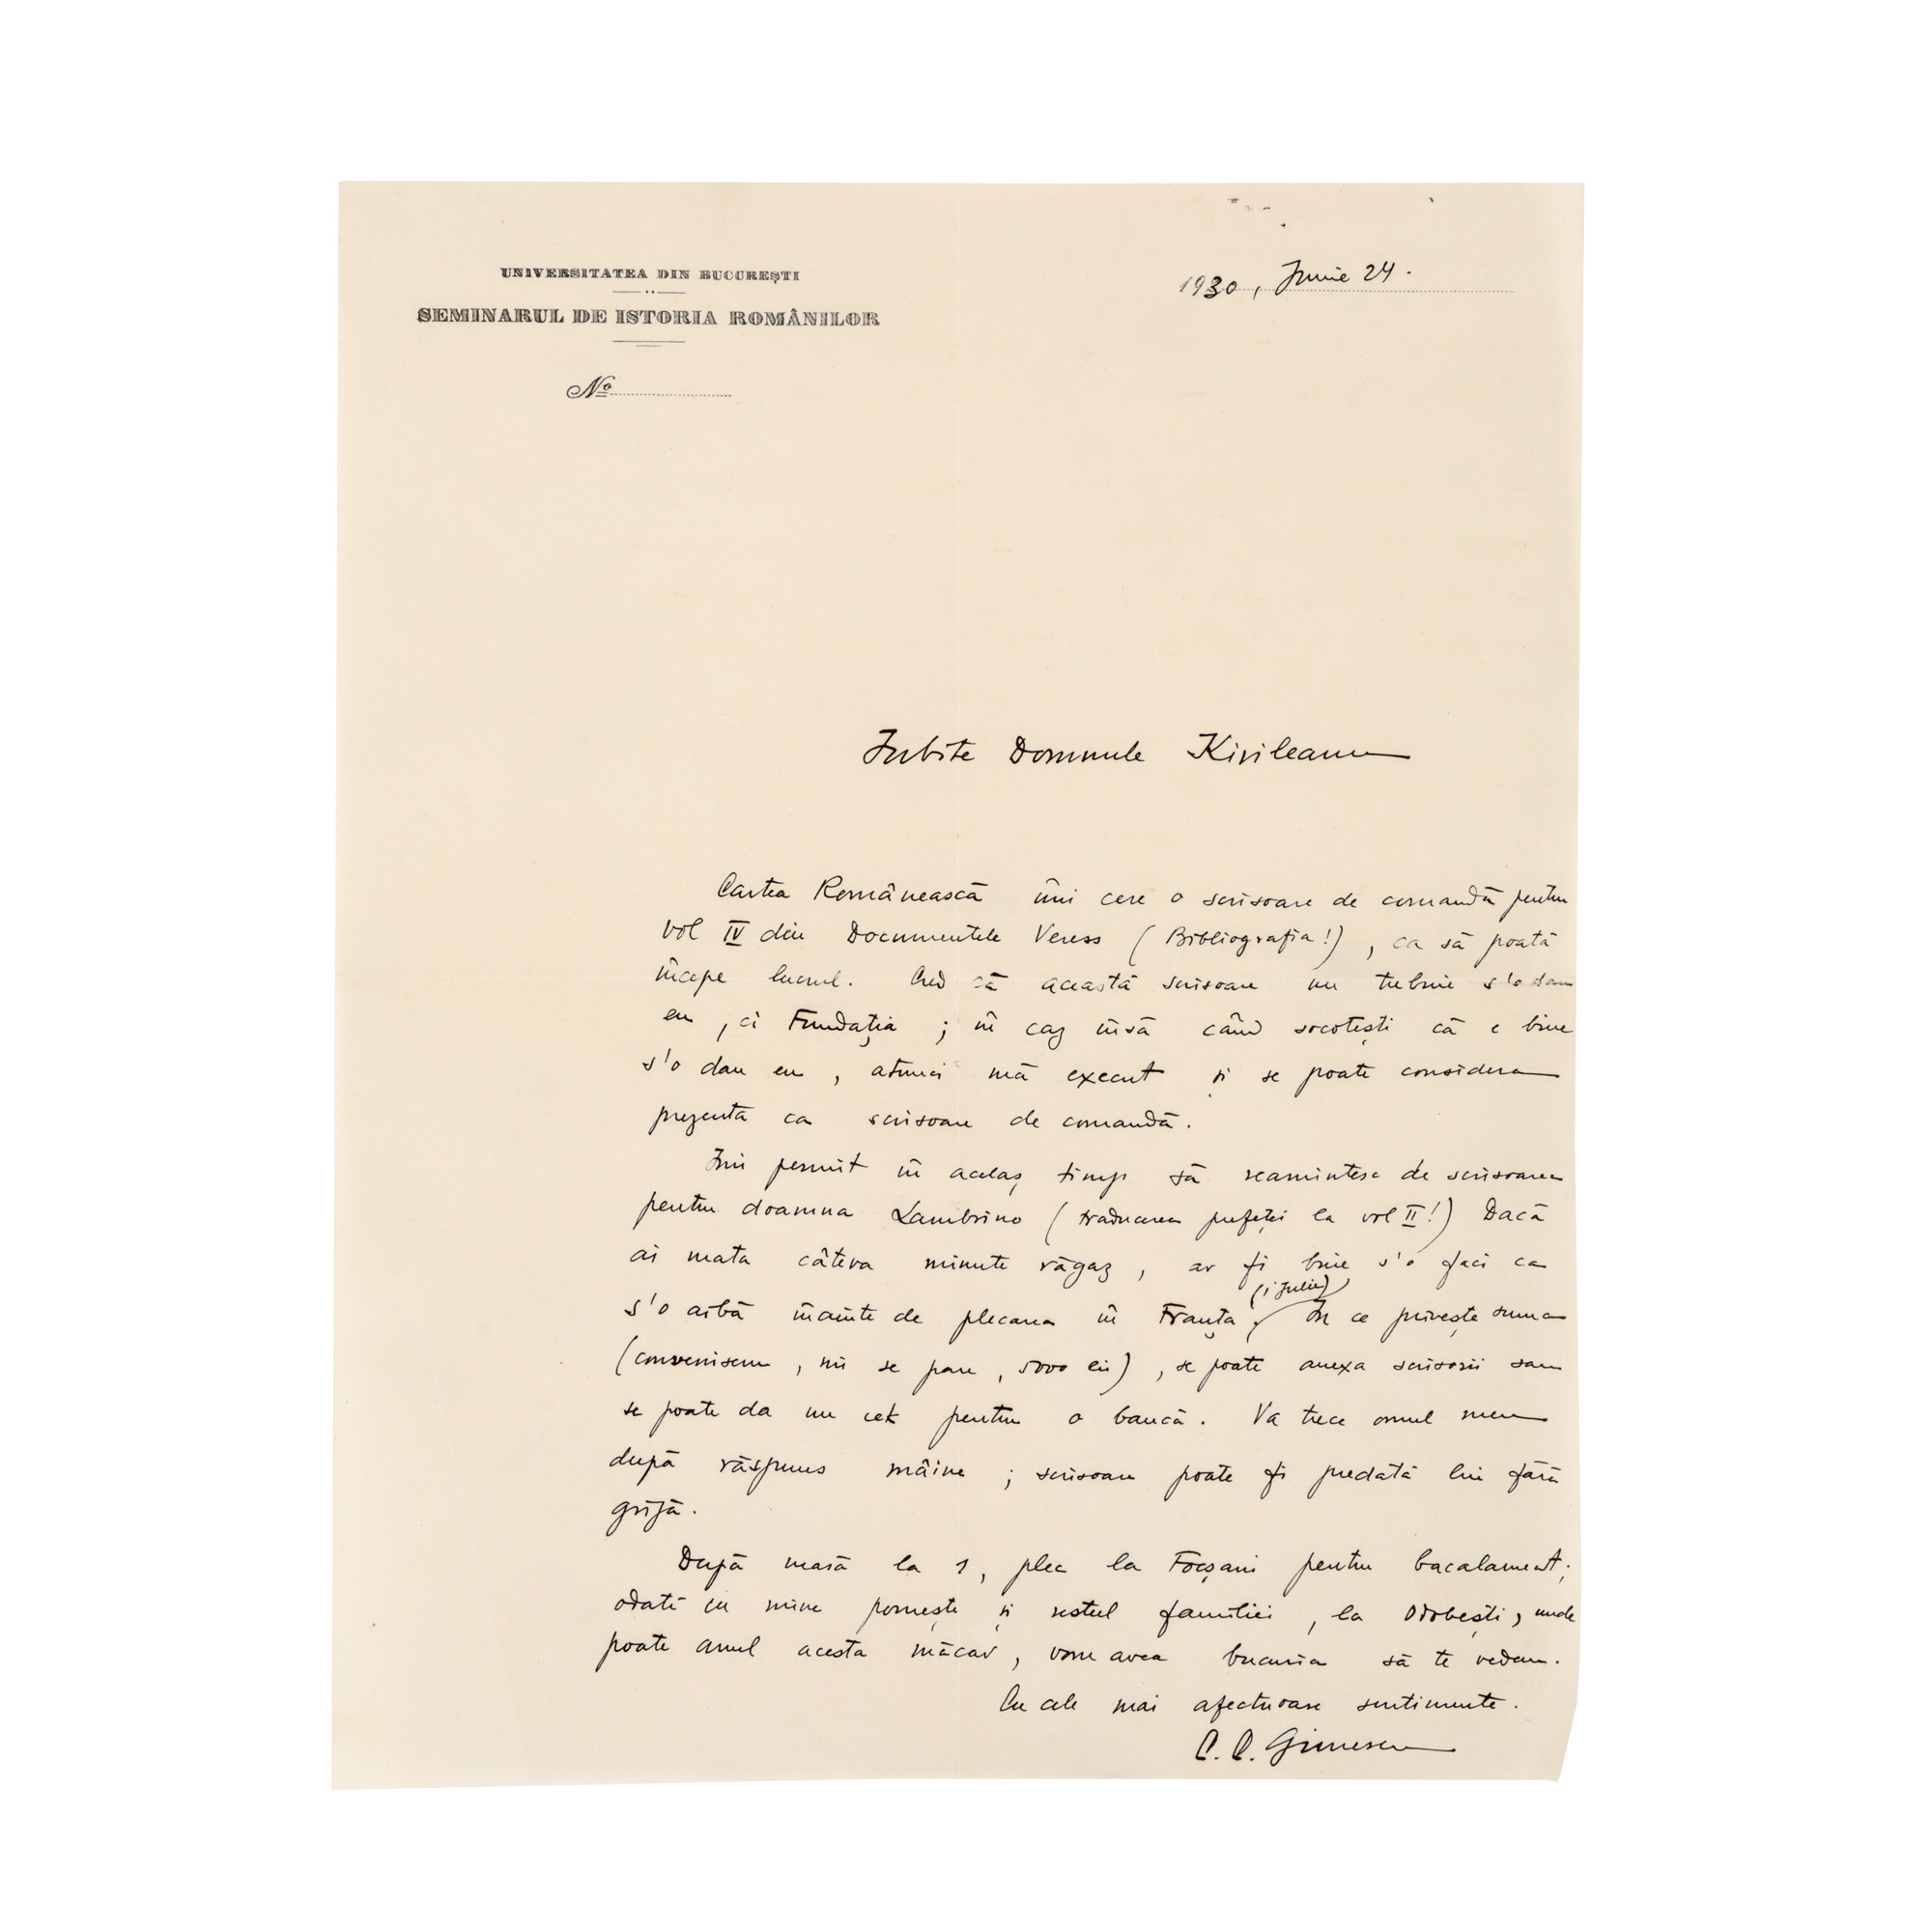 UNIVERSITATEA DIN BUCUREȘTI
SEMINARUL DE ISTORIA ROMÂNILOR
No
1930, Iunie 24.
Iubite Domnule Kirileanu
Cartea Românească îmi cere o scrisoare de comandă pentru
vol IV din Documentele Veress (Bibliografia!), ca să poată
începe lucrul. Cred că această scrisoare nu trebuie s'o dau
eu, ci Fundația; în caz însă când socotești că e bine
s'o dau eu, atunci mă execut și se poate considera
prezenta ca scrisoare de comandă.
Îmi permit în acelaș timp să reamintesc de scrisoarea
pentru doamna Lambrino (traducerea prefeței la vol II!) Dacă
ai mata câteva minute răgaz, ar fi bine s'o faci ca
(1 Iulie)
s'o aibă înainte de plecarea în Franța. În ce privește suma
(convenisem, mi se pare, 5000 lei), se poate anexa scrisorii sau
se poate da un cek pentru o bancă. Va trece omul meu
după răspuns mâine; scrisoarea poate fi predată lui fără
grijă.
După masă la 1, plec la Focșani pentru bacalaureat;
odată cu mine pornește și restul familiei, la Odobești, unde
poate anul acesta măcar, vom avea bucuria să te vedem.
Cu cele mai afectuoase sentimente.
C. C. Giurescu